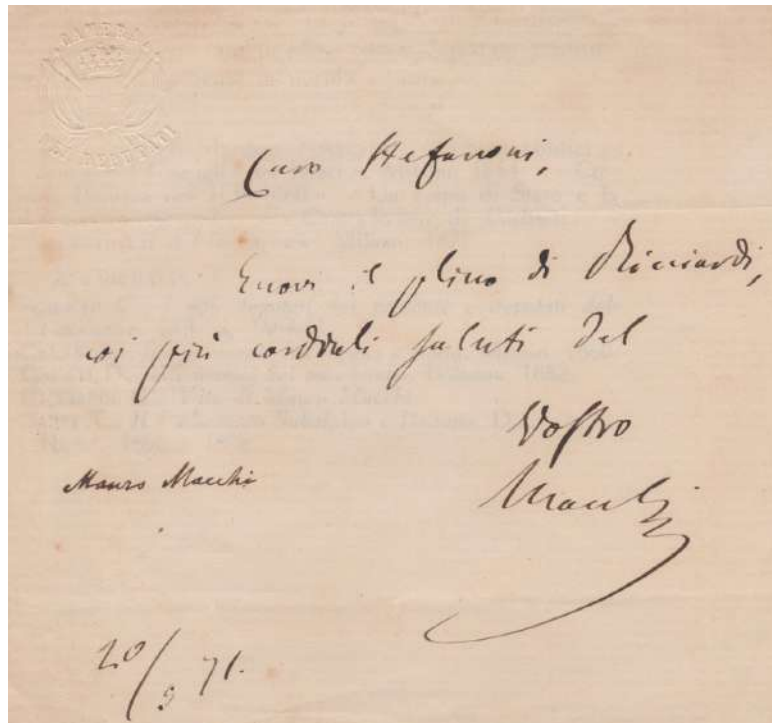 CAMERA
DEI DEPUTATI
Caro Stefanoni,
Eccovi il plico di Ricciardi,
coi più cordiali saluti del
Vostro
Mauro Macchi
Macchi
20/9 71.